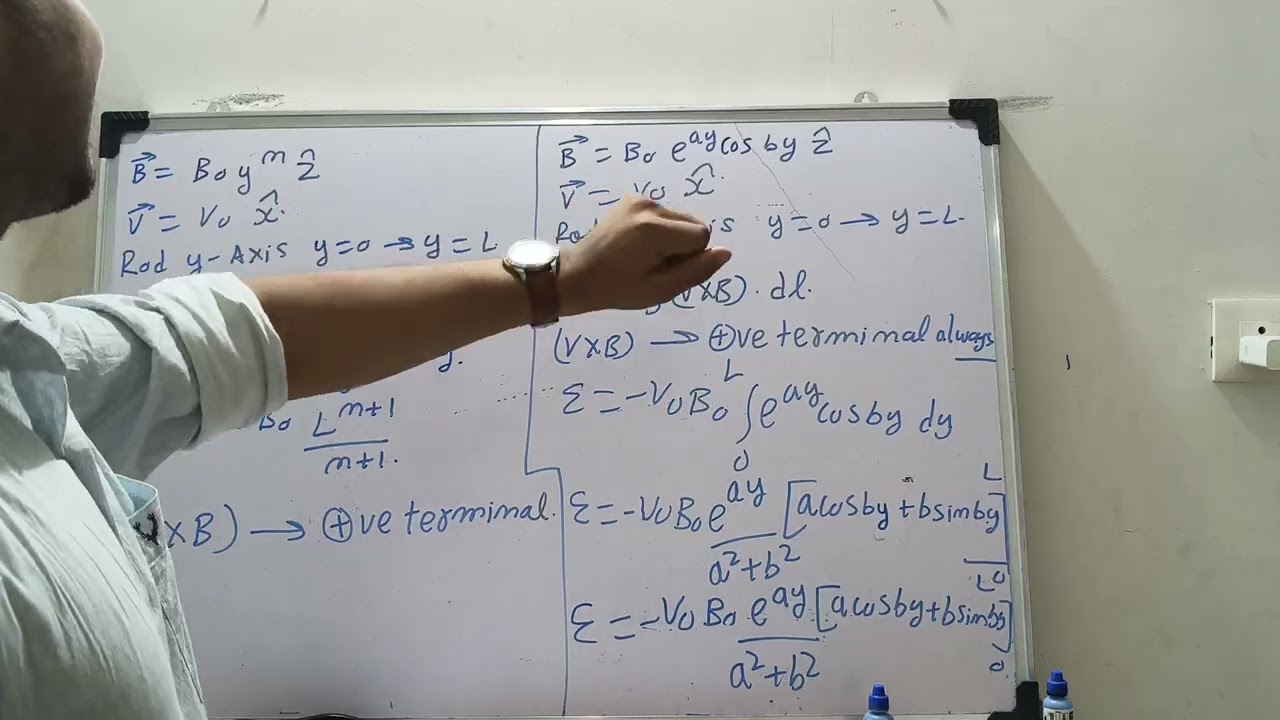 B⃗ = B₀ y^n ẑ
V⃗ = V₀ x̂.
Rod y-Axis y=0 → y=L
B₀ L^(n+1)/(n+1).
×B) → ⊕ve terminal.
B⃗ = B₀ e^(ay) cos by ẑ
V⃗ = V₀ x̂.
is y=0 → y=L.
(V×B). dl.
(V×B) → ⊕ve terminal always
ε = -V₀B₀ ∫₀^L e^(ay) cos by dy
ε = -V₀B₀ e^(ay)/(a²+b²) [a cos by + b sin by]₀^L
ε = -V₀B₀ e^(ay)/(a²+b²) [a cos by + b sin by]₀^L